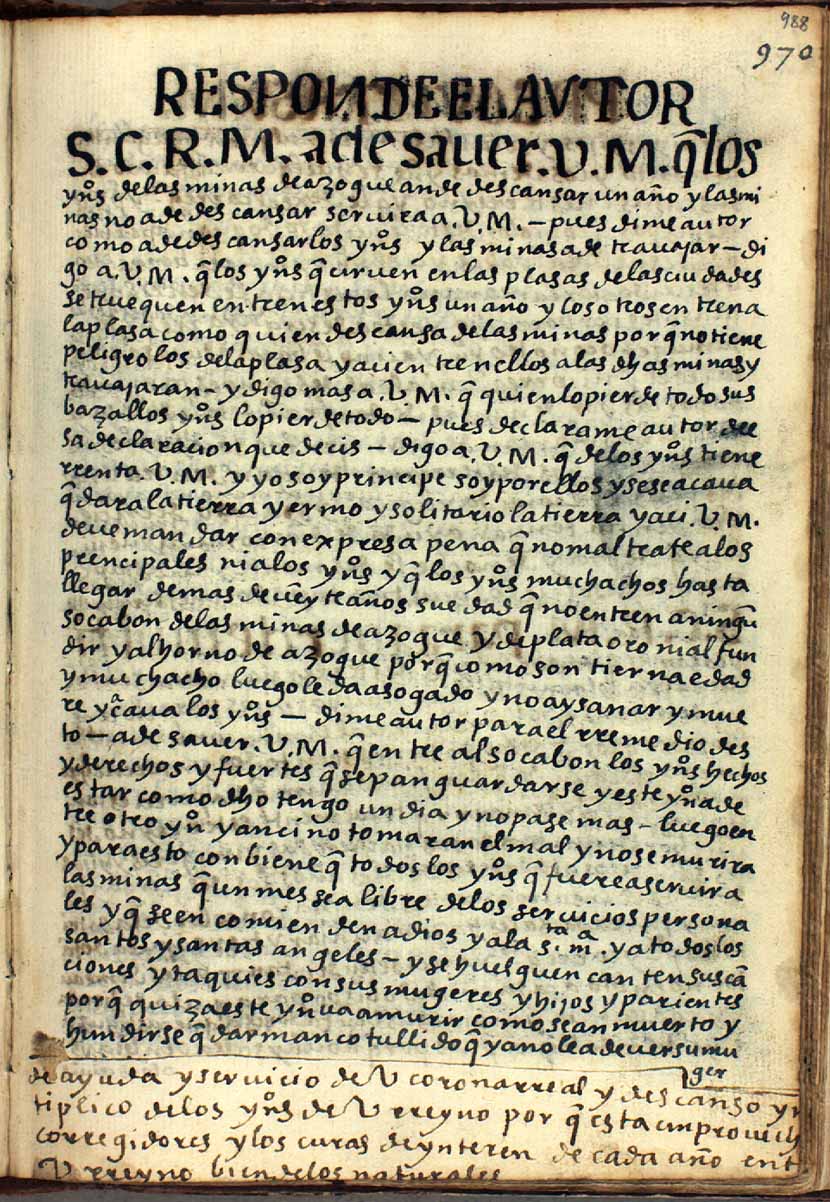 988
970
RESPONDE EL AVTOR
S. C. R. M. a de sauer. V. M. q̃ los
yn̊s de las minas de azogue an de descansar un año y las mi
nas no a de descansar seruira a. V. M. – pues dime autor
como a de descansar los yn̊s y las minas a de trauajar – di
go a. V. M. q̃ los yn̊s q̃ ciruen en las plasas de las ciudades
se truequen entren estos yn̊s un año y los otros entren a
la plasa como quien descansa de las minas por q̃ no tiene
peligro los de la plasa y aci entren ellos a las dhas minas y
trauajaran – y digo mas a. V. M. q̃ quien lo pierde todo sus
bazallos yn̊s lo pierde todo – pues declarame autor de e
sa declaracion que decis – digo a. V. M. q̃ de los yn̊s tiene
rrenta. V. M. y yo soy principe soy por ellos y se se acaua
q̃dara la tierra yermo y solitario la tierra y aci. V. M.
deue mandar con expresa pena q̃ no maltrate a los
prencipales ni a los yn̊s y q̃ los yn̊s muchachos hasta
llegar de mas de ueynte años su edad q̃ no entren a ningũ
socabon de las minas de azogue y de plata oro ni al fun
dir y al horno de azogue porq̃ como son tierna edad
y muchacho luego le da asogado y no ay sanar y mue
re y acaua los yn̊s – dime autor para el rremedio des
to – a de sauer. V. M. q̃ entre al socabon los yn̊s hechos
y derechos y fuertes q̃ sepan guardarse y este yn̊ a de
estar como dho tengo un dia y no pase mas – luego en
tre otro yn̊ y anci no tomaran el mal y no se murira
y para esto conbiene q̃ todos los yn̊s q̃ fuere a seruir a
las minas q̃ un mes sea libre de los seruicios persona
les y q̃ se encomienden a dios y a la s.ta m.a y a todos los
santos y santas angeles – y se huelguen canten sus cã
ciones y taquies con sus mugeres y hijos y parientes
porq̃ quiza este yn̊ ua a murir como sean muerto y
hundirse q̃dar manco tullido q̃ ya no le a de uer su mu
ger
de ayuda y seruicio de V corona rreal y descanso y
tiplico de los yn̊s de V rreyno por q̃ esta
corregidores y los curas de ynteren de cada año
V rreyno bien de los naturales